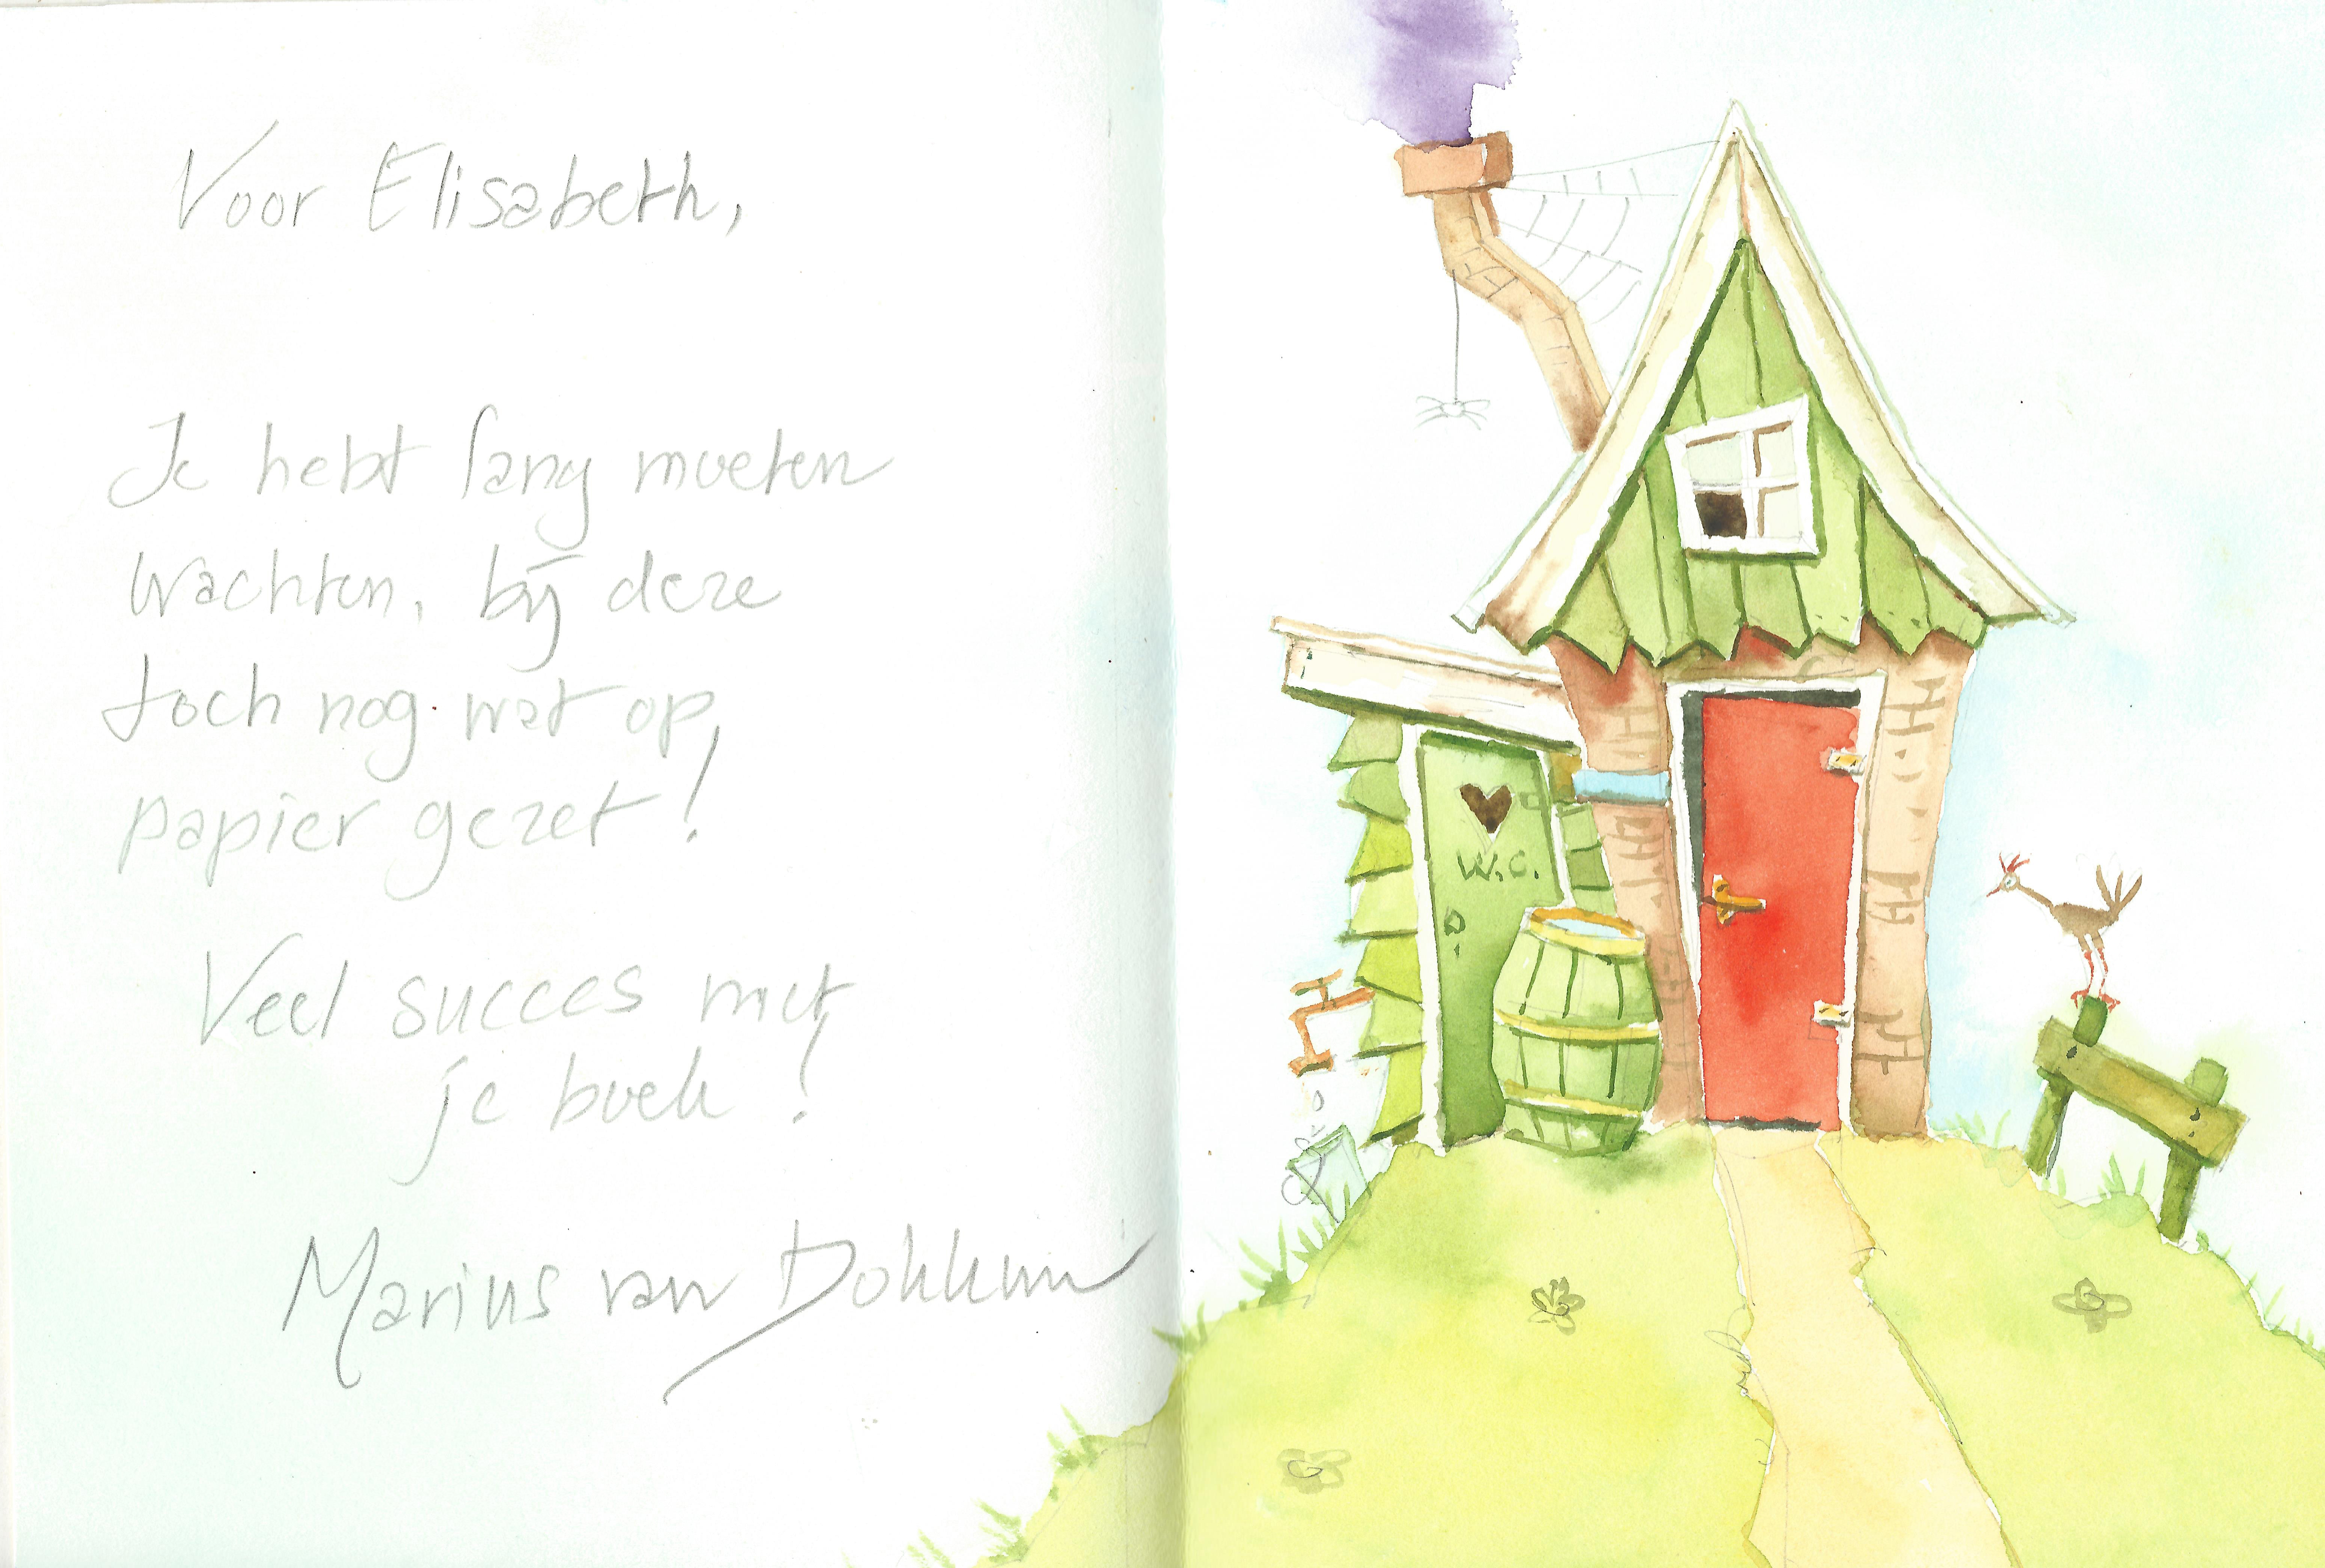 Voor Elisabeth,
Je hebt lang moeten
wachten, bij deze
toch nog wat op
papier gezet!
Veel succes met
je boek!
Marius van Dokkum
W.C.